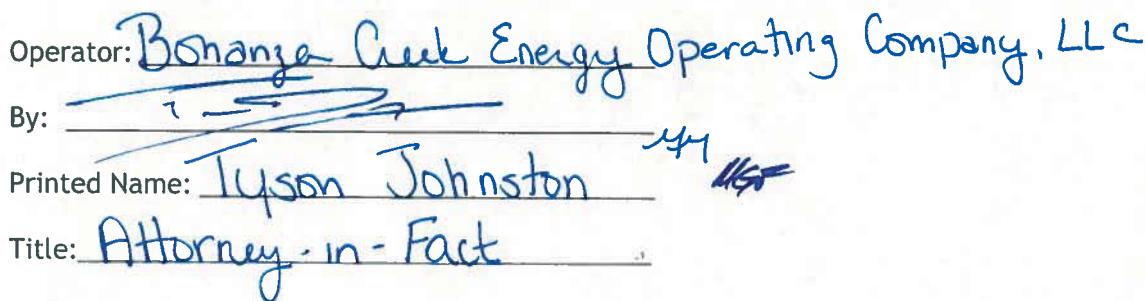 Operator: Bonanza Creek Energy Operating Company, LLC
By:
Printed Name: Tyson Johnston
Title: Attorney-in-Fact